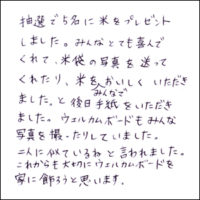 抽選で5名に米をプレゼント
しました。みんなとても喜んで
くれて、米袋の写真を送って
くれたり、米を、おいしくいただき
みんなで
ました。と後日手紙をいただき
ました。ウェルカムボードもみんな
写真を撮ったりしていました。
二人に似ているねと言われました。
これからも大切にウェルカムボードを
家に飾ろうと思います。